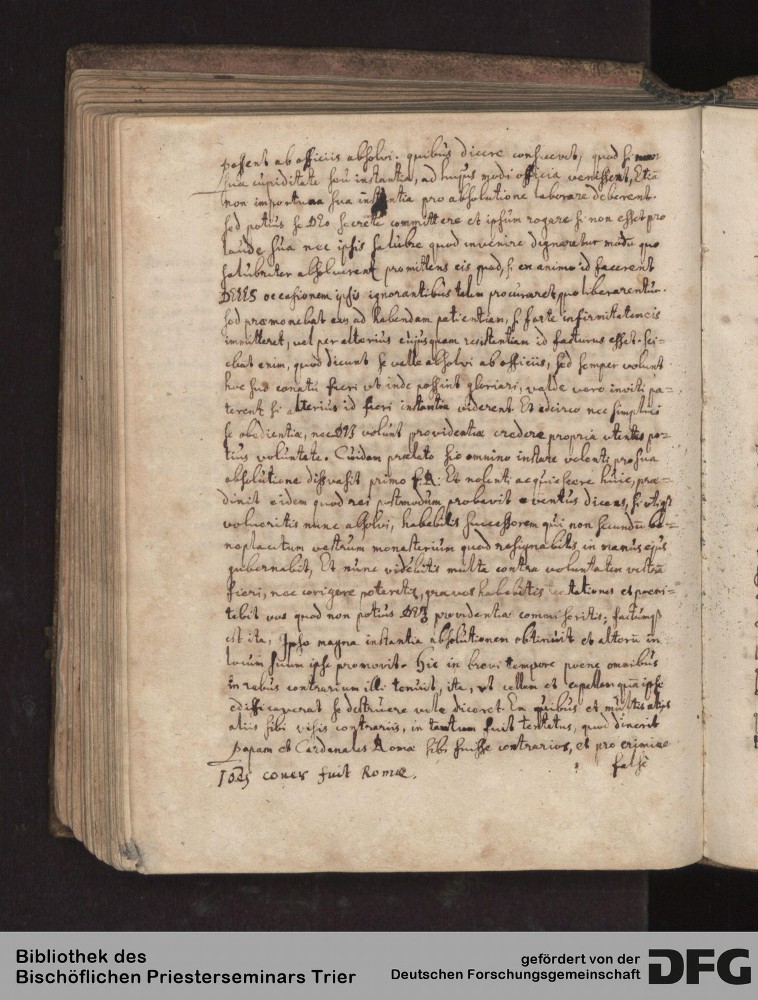 possent ab officiis absolvi. quibus dicere consuevit, quod si non
sua cupiditate seu instantia, ad hujus modi officia venissent, Etiā
non importuna sua instantia pro absolutione laborare deberent.
sed potius se DEo secrete committere et ipsum rogare si non esset pro
laude sua nec ipsis salubre quod invenire dignaretur modū quo
salubriter absolverent promittens eis quod, si ex animo id facerent
DEUS occasionem ipsis ignorantibus talem procuraret quo liberarentur.
sed præmonebat eos ad habendam patientiam, si forte infirmitatem eis
immitteret, vel per alterius cujusquam resistentiam id facturus esset. Sci-
ebat enim, quod dicunt se velle absolvi ab officiis, sed semper volunt
hoc suo conatu fieri ut inde possint gloriari, valde vero inviti pa-
terent si alterius id fieri instantia viderent. Et idcirco nec simplici
se obedientiæ, nec DEI volunt providentiæ credere propria utentes po-
tius voluntate. Cuidam prælato sic omnino instare volenti pro sua
absolutione dissuasit primo Et nolenti acquiescere huic, præ-
dixit eidem quod rei postmodum probavit eventus dicens, si
volueritis nunc absolvi, habebitis successorem qui non secundū be-
neplacitum vestrum monasterium quod resignabitis in manus ejus
gubernabit, Et nunc videbitis multa contra voluntatem vestrā
fieri, nec corigere poteritis, graves habebitis tentationes et poeni-
tebit vos quod non potius DEI providentiæ commiseritis; factumqȝ
est ita, Ipso magna instantia absolutionem obtinuit et alterū in
locum suum ipse promovit. Hic in brevi tempore poene omnibus
in rebus contrarium illi tenuit, ita, ut cellam et capellam quā ipse
edificaverat se destruere velle diceret. Ex quibus et multis aliis
aliis sibi visis contrariis, in tantum fuit tentatus, quod dixerit
Papam et Cardenales Romæ sibi fuisse contrarios, et pro crimine
falsi
fuit Romæ.
Bibliothek des
Bischöflichen Priesterseminars Trier
gefördert von der
Deutschen Forschungsgemeinschaft
DFG